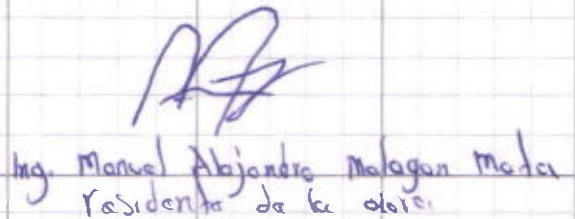 Ing. Manuel Alejandro Malagon Mata
residente de la obra.